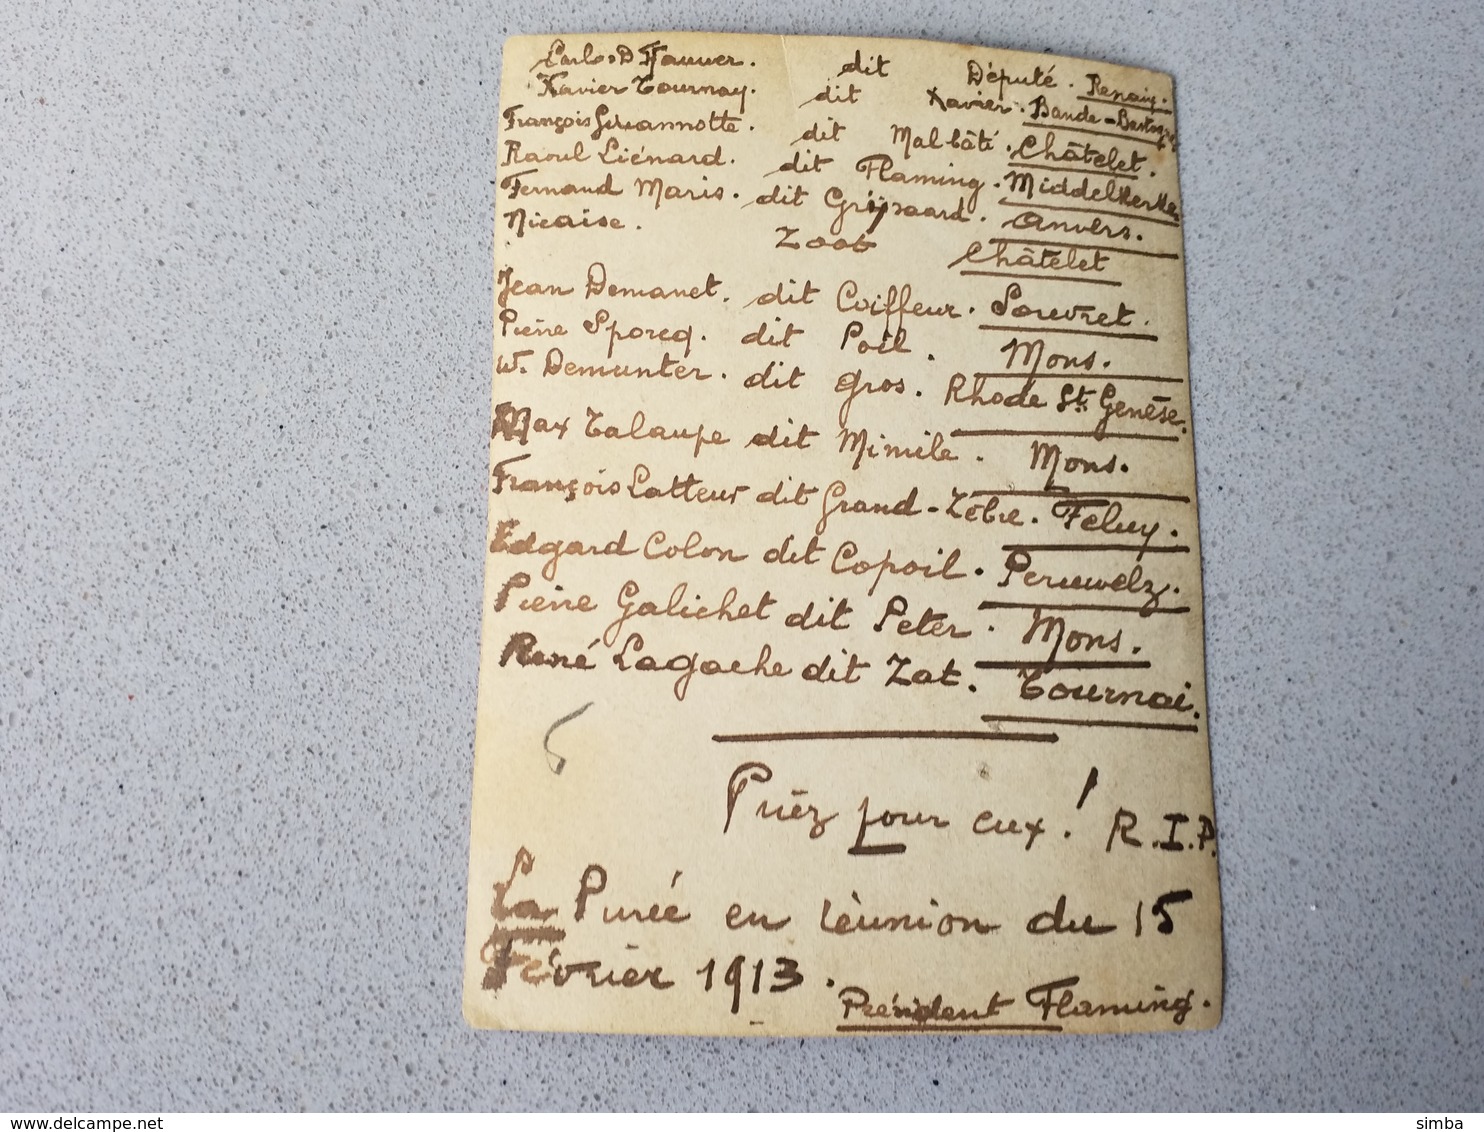 dit Député. Renaix.
Xavier Tournay. dit Xavier. Bande-Bastogne
François dit Malbâti. Châtelet.
Raoul Liénard. dit Flaming. Middelkerke
Fernand Maris. dit Grijsaard. Anvers.
Nicaise. Zoot Châtelet
Jean Demanet. dit Coiffeur. Souvret.
Pierre Sporcq. dit Poil. Mons.
W. Demunter. dit Gros. Rhode St. Genèse.
Max Talaupe dit Mimile. Mons.
François Latteur dit Grand-Zèbre. Feluy.
Edgard Colon dit Copoil. Peruwelz.
Pierre Galichet dit Peter. Mons.
René Lagache dit Zat. Tournai.
Priez pour eux! R.I.P.
La Purée en réunion du 15
Février 1913.
Président Flaming.
delcampe.net
simba